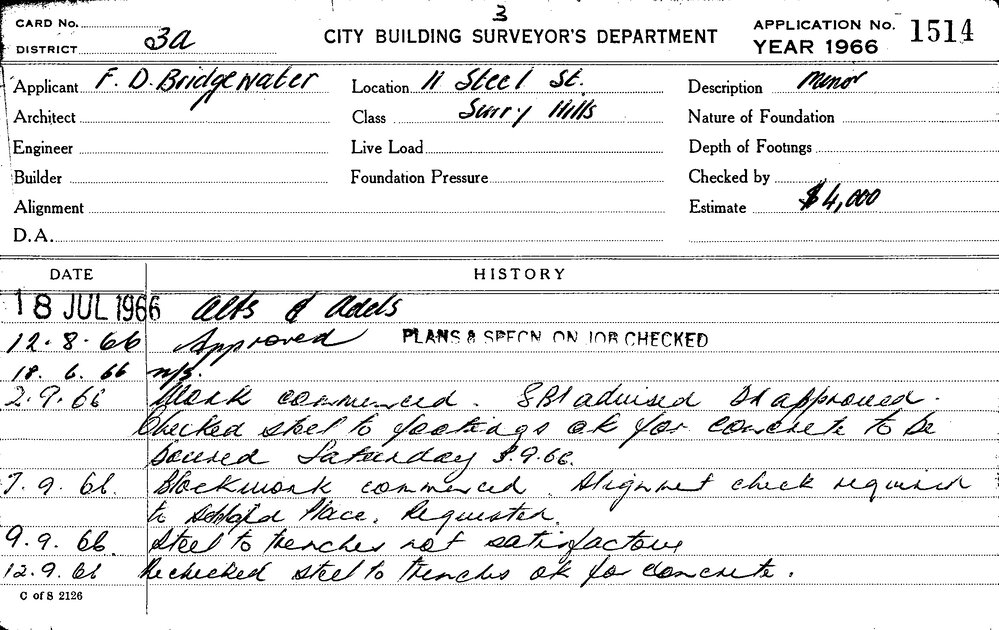 3
CARD No. CITY BUILDING SURVEYOR'S DEPARTMENT APPLICATION No. 1514
DISTRICT 3a YEAR 1966
Applicant F. D. Bridgewater Location 11 Steel St. Description Minor
Architect Class Surry Hills Nature of Foundation
Engineer Live Load Depth of Footings
Builder Foundation Pressure Checked by
Alignment Estimate $4,000
D.A.
DATE HISTORY
18 JUL 1966 Alts & Adds
12.8.66 Approved PLANS & SPECN ON JOB CHECKED
18. 6. 66 n/s.
2.9.66 Work commenced. SBI advised approved.
Checked steel to footings ok for concrete to be
poured Saturday 3.9.66.
7.9.66. Blockwork commenced. Alignment check required
to Place. Requested.
9.9.66. Steel to trenches not satisfactory
12.9.66 Rechecked steel to trenches ok for concrete.
C of S 2126